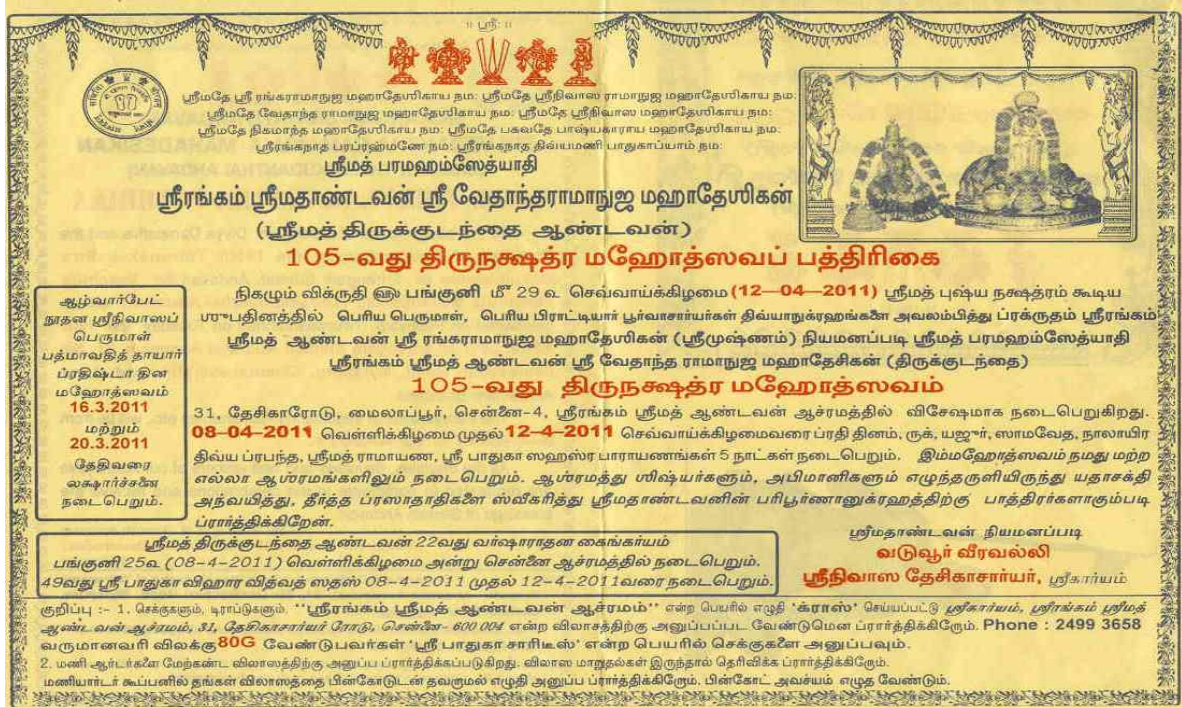 ॥ ஸ்ரீ: ॥
ஸ்ரீமதே ஸ்ரீ ரங்கராமாநுஜ மஹாதேஶிகாய நம: ஸ்ரீமதே ஸ்ரீநிவாஸ ராமாநுஜ மஹாதேஶிகாய நம:
ஸ்ரீமதே வேதாந்த ராமாநுஜ மஹாதேஶிகாய நம: ஸ்ரீமதே ஸ்ரீநிவாஸ மஹாதேஶிகாய நம:
ஸ்ரீமதே நிகமாந்த மஹாதேஶிகாய நம: ஸ்ரீமதே பகவதே பாஷ்யகாராய மஹாதேஶிகாய நம:
ஸ்ரீரங்கநாத பரப்ரஹ்மணே நம: ஸ்ரீரங்கநாத திவ்யமணி பாதுகாப்யாம் நம:
ஸ்ரீமத் பரமஹம்ஸேத்யாதி
ஸ்ரீரங்கம் ஸ்ரீமதாண்டவன் ஸ்ரீ வேதாந்தராமாநுஜ மஹாதேஶிகன்
(ஸ்ரீமத் திருக்குடந்தை ஆண்டவன்)
105-வது திருநக்ஷத்ர மஹோத்ஸவப் பத்திரிகை
நிகழும் விக்ருதி ௵ பங்குனி மீ 29 உ செவ்வாய்க்கிழமை (12-04-2011) ஸ்ரீமத் புஷ்ய நக்ஷத்ரம் கூடிய
ஶுபதினத்தில் பெரிய பெருமாள், பெரிய பிராட்டியார் பூர்வாசார்யர்கள் திவ்யாநுக்ரஹங்களை அவலம்பித்து ப்ரக்ருதம் ஸ்ரீரங்கம்
ஸ்ரீமத் ஆண்டவன் ஸ்ரீ ரங்கராமாநுஜ மஹாதேஶிகன் (ஸ்ரீமுஷ்ணம்) நியமனப்படி ஸ்ரீமத் பரமஹம்ஸேத்யாதி
ஸ்ரீரங்கம் ஸ்ரீமத் ஆண்டவன் ஸ்ரீ வேதாந்த ராமாநுஜ மஹாதேசிகன் (திருக்குடந்தை)
105-வது திருநக்ஷத்ர மஹோத்ஸவம்
31, தேசிகாரோடு, மைலாப்பூர், சென்னை-4, ஸ்ரீரங்கம் ஸ்ரீமத் ஆண்டவன் ஆச்ரமத்தில் விசேஷமாக நடைபெறுகிறது.
08-04-2011 வெள்ளிக்கிழமை முதல் 12-4-2011 செவ்வாய்க்கிழமைவரை ப்ரதி தினம், ருக், யஜுர், ஸாமவேத, நாலாயிர
திவ்ய ப்ரபந்த, ஸ்ரீமத் ராமாயண, ஸ்ரீ பாதுகா ஸஹஸ்ர பாராயணங்கள் 5 நாட்கள் நடைபெறும். இம்மஹோத்ஸவம் நமது மற்ற
எல்லா ஆஶ்ரமங்களிலும் நடைபெறும். ஆஶ்ரமத்து ஶிஷ்யர்களும், அபிமானிகளும் எழுந்தருளியிருந்து யதாசக்தி
அந்வயித்து, தீர்த்த ப்ரஸாதாதிகளை ஸ்வீகரித்து ஸ்ரீமதாண்டவனின் பரிபூர்ணானுக்ரஹத்திற்கு பாத்திரர்களாகும்படி
ப்ரார்த்திக்கிறேன்.
ஆழ்வார்பேட்
நூதன ஸ்ரீநிவாஸப்
பெருமாள்
பத்மாவதித் தாயார்
ப்ரதிஷ்டா தின
மஹோத்ஸவம்
16.3.2011
மற்றும்
20.3.2011
தேதிவரை
லக்ஷார்ச்சனை
நடைபெறும்.
ஸ்ரீமத் திருக்குடந்தை ஆண்டவன் 22வது வர்ஷாராதன கைங்கர்யம்
பங்குனி 25உ (08-4-2011) வெள்ளிக்கிழமை அன்று சென்னை ஆச்ரமத்தில் நடைபெறும்.
49வது ஸ்ரீ பாதுகா விஹார வித்வத் ஸதஸ் 08-4-2011 முதல் 12-4-2011வரை நடைபெறும்.
ஸ்ரீமதாண்டவன் நியமனப்படி
வடுவூர் வீரவல்லி
ஸ்ரீநிவாஸ தேசிகாசார்யர், ஸ்ரீகார்யம்
குறிப்பு :- 1. செக்குகளும், டிராப்டுகளும், "ஸ்ரீரங்கம் ஸ்ரீமத் ஆண்டவன் ஆச்ரமம்" என்ற பெயரில் எழுதி 'க்ராஸ்' செய்யப்பட்டு ஸ்ரீகார்யம், ஸ்ரீரங்கம் ஸ்ரீமத்
ஆண்டவன் ஆச்ரமம், 31, தேசிகாசார்யர் ரோடு, சென்னை- 600 004 என்ற விலாசத்திற்கு அனுப்பப்பட வேண்டுமென ப்ரார்த்திக்கிறோம். Phone : 2499 3658
வருமானவரி விலக்கு 80G வேண்டுபவர்கள் 'ஸ்ரீ பாதுகா சாரிடீஸ்' என்ற பெயரில் செக்குகளை அனுப்பவும்.
2. மணி ஆர்டர்களை மேற்கண்ட விலாஸத்திற்கு அனுப்ப ப்ரார்த்திக்கப்படுகிறது. விலாஸ மாறுதல்கள் இருந்தால் தெரிவிக்க ப்ரார்த்திக்கிறோம்.
மணியார்டர் கூப்பனில் தங்கள் விலாஸத்தை பின்கோடுடன் தவருமல் எழுதி அனுப்ப ப்ரார்த்திக்கிறோம். பின்கோட் அவச்யம் எழுத வேண்டும்.